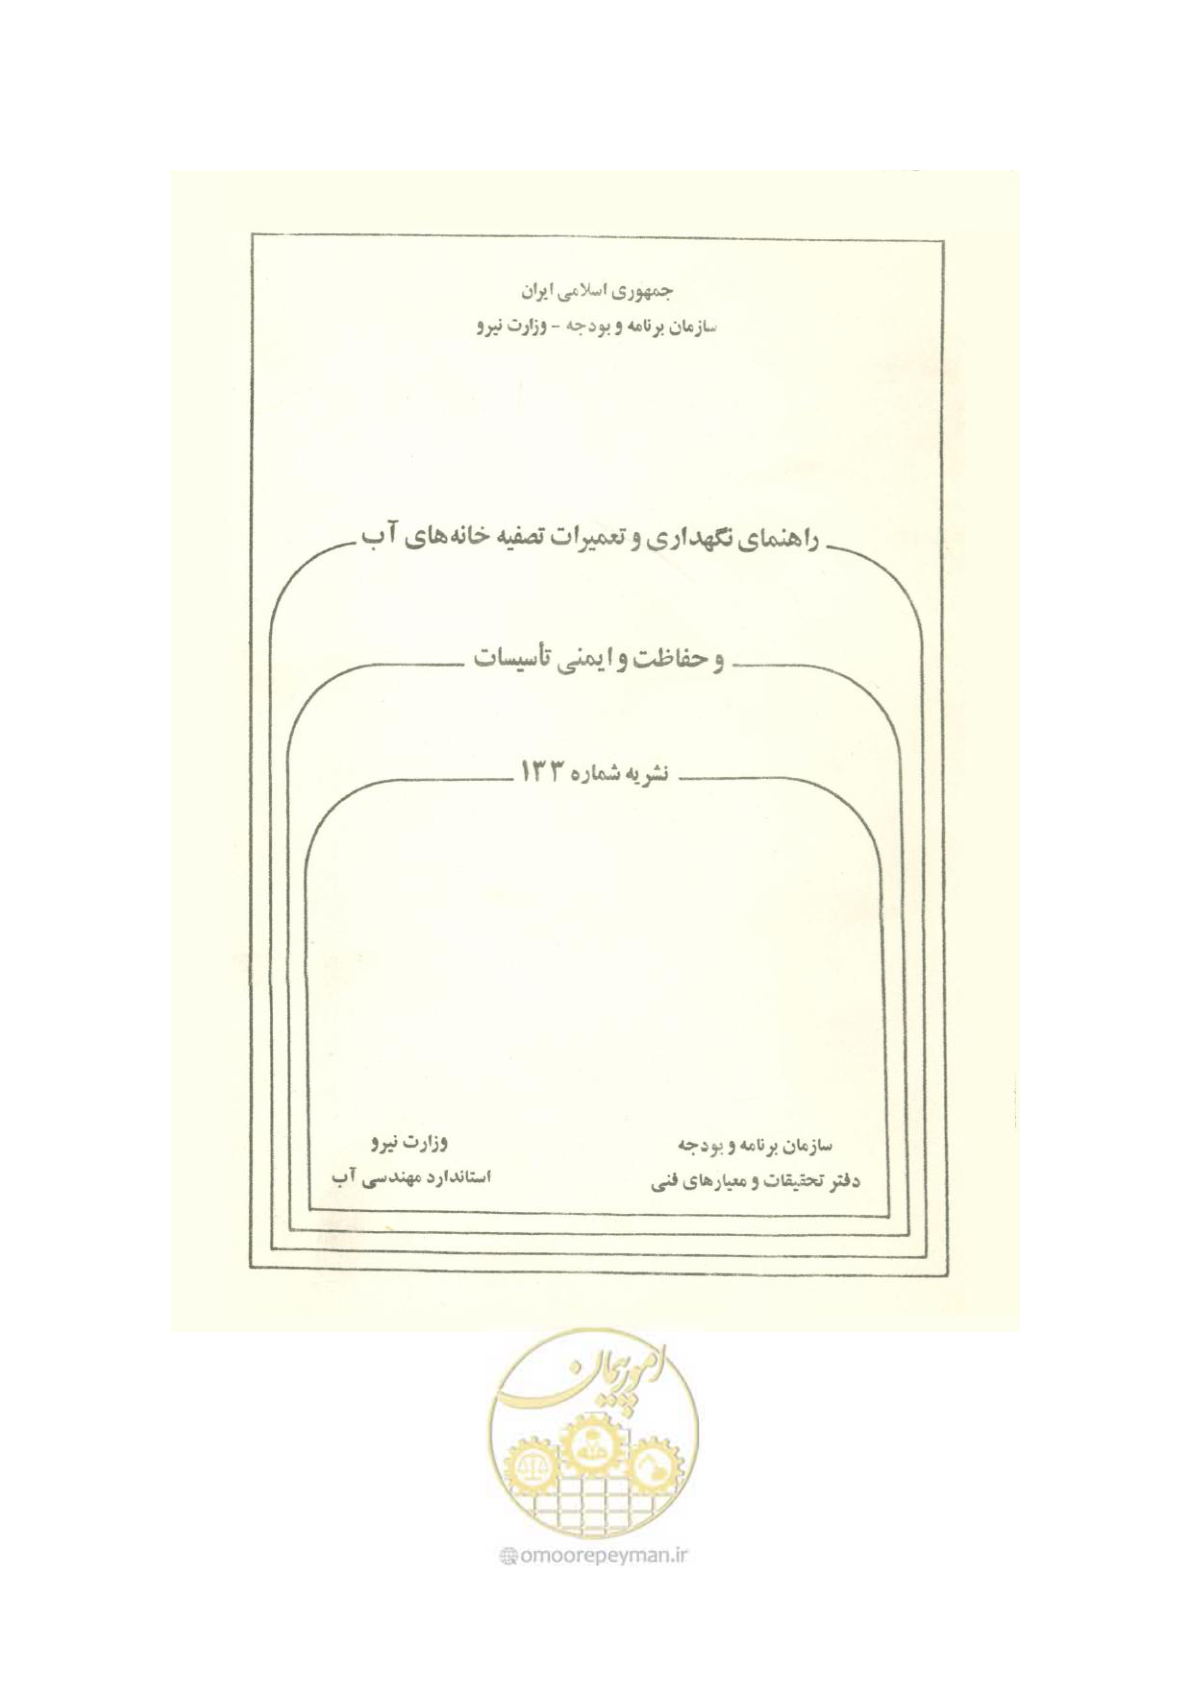 جمهوری اسلامی ایران
سازمان برنامه و بودجه - وزارت نیرو
راهنمای نگهداری و تعمیرات تصفیه خانه‌های آب
و حفاظت و ایمنی تأسیسات
نشریه شماره ۱۳۳
سازمان برنامه و بودجه
دفتر تحقیقات و معیارهای فنی
وزارت نیرو
استاندارد مهندسی آب
امور پیمان
@omoorepeyman.ir